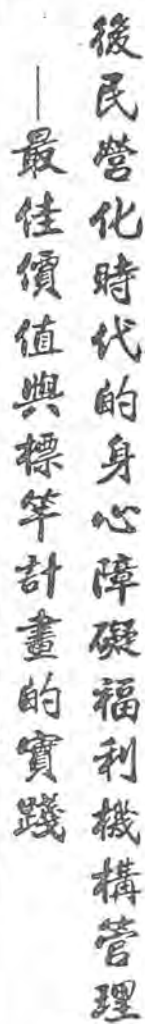 後民營化時代的身心障礙福利機構管理
—最佳價值與標竿計畫的實踐